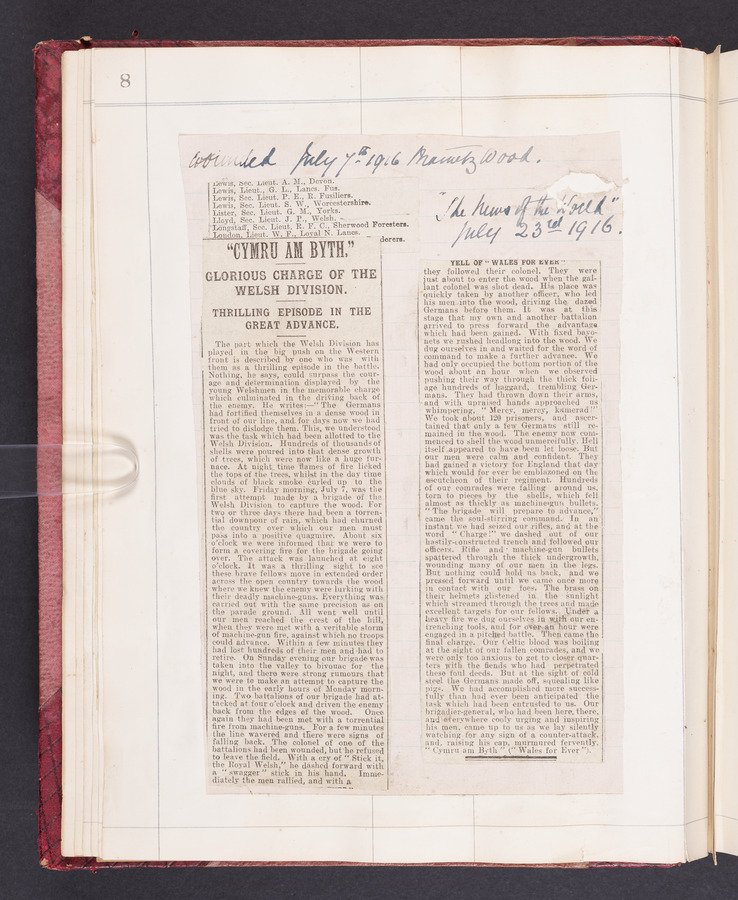 8
wounded July 7th 1916 Mametz Wood.
Lewis, Sec. Lieut. A. M., Devon.
Lewis, Lieut., G. L., Lancs. Fus.
Lewis, Sec. Lieut. P. E., R. Fusiliers.
Lewis, Sec. Lieut. S. W., Worcestershire.
Lister, Sec. Lieut. G. M., Yorks.
Lloyd, Sec. Lieut. J. P., Welsh.
Longstaff, Sec. Lieut. R. F. C., Sherwood Foresters.
London, Lieut. W. F., Loyal N. Lancs.
derers.
"The News of the World"
July 23rd 1916.
"CYMRU AM BYTH."
GLORIOUS CHARGE OF THE
WELSH DIVISION.
THRILLING EPISODE IN THE
GREAT ADVANCE.
The part which the Welsh Division has
played in the big push on the Western
front is described by one who was with
them as a thrilling episode in the battle.
Nothing, he says, could surpass the cour-
age and determination displayed by the
young Welshmen in the memorable charge
which culminated in the driving back of
the enemy. He writes:—"The Germans
had fortified themselves in a dense wood in
front of our line, and for days now we had
tried to dislodge them. This, we understood
was the task which had been allotted to the
Welsh Division. Hundreds of thousands of
shells were poured into that dense growth
of trees, which were now like a huge fur-
nace. At night time flames of fire licked
the tops of the trees, whilst in the day time
clouds of black smoke curled up to the
blue sky. Friday morning, July 7, was the
first attempt made by a brigade of the
Welsh Division to capture the wood. For
two or three days there had been a torren-
tial downpour of rain, which had churned
the country over which our men must
pass into a positive quagmire. About six
o'clock we were informed that we were to
form a covering fire for the brigade going
over. The attack was launched at eight
o'clock. It was a thrilling sight to see
these brave fellows move in extended order
across the open country towards the wood
where we knew the enemy were lurking with
their deadly machine-guns. Everything was
carried out with the same precision as on
the parade ground. All went well until
our men reached the crest of the hill,
when they were met with a veritable storm
of machine-gun fire, against which no troops
could advance. Within a few minutes they
had lost hundreds of their men and had to
retire. On Sunday evening our brigade was
taken into the valley to bivouac for the
night, and there were strong rumours that
we were to make an attempt to capture the
wood in the early hours of Monday morn-
ing. Two battalions of our brigade had at-
tacked at four o'clock and driven the enemy
back from the edges of the wood. Once
again they had been met with a torrential
fire from machine-guns. For a few minutes
the line wavered and there were signs of
falling back. The colonel of one of the
battalions had been wounded, but he refused
to leave the field. With a cry of "Stick it,
the Royal Welsh," he dashed forward with
a "swagger" stick in his hand. Imme-
diately the men rallied, and with a
YELL OF "WALES FOR EVER"
they followed their colonel. They were
just about to enter the wood when the gal-
lant colonel was shot dead. His place was
quickly taken by another officer, who led
his men into the wood, driving the dazed
Germans before them. It was at this
stage that my own and another battalion
arrived to press forward the advantage
which had been gained. With fixed bayo-
nets we rushed headlong into the wood. We
dug ourselves in and waited for the word of
command to make a further advance. We
had only occupied the bottom portion of the
wood about an hour when we observed
pushing their way through the thick foli-
age hundreds of haggard, trembling Ger-
mans. They had thrown down their arms,
and with upraised hands approached us
whimpering, "Mercy, mercy, kamerad!"
We took about 120 prisoners, and ascer-
tained that only a few Germans still re-
mained in the wood. The enemy now com-
menced to shell the wood unmercifully. Hell
itself appeared to have been let loose. But
our men were calm and confident. They
had gained a victory for England that day
which would for ever be emblazoned on the
escutcheon of their regiment. Hundreds
of our comrades were falling around us,
torn to pieces by the shells, which fell
almost as thickly as machine-gun bullets.
"The brigade will prepare to advance,"
came the soul-stirring command. In an
instant we had seized our rifles, and at the
word "Charge!" we dashed out of our
hastily-constructed trench and followed our
officers. Rifle and machine-gun bullets
spattered through the thick undergrowth,
wounding many of our men in the legs.
But nothing could hold us back, and we
pressed forward until we came once more
in contact with our foes. The brass on
their helmets glistened in the sunlight
which streamed through the trees and made
excellent targets for our fellows. Under a
heavy fire we dug ourselves in with our en-
trenching tools, and for over an hour were
engaged in a pitched battle. Then came the
final charge. Our Celtic blood was boiling
at the sight of our fallen comrades, and we
were only too anxious to get to closer quar-
ters with the fiends who had perpetrated
these foul deeds. But at the sight of cold
steel the Germans made off, squealing like
pigs. We had accomplished more success-
fully than had ever been anticipated the
task which had been entrusted to us. Our
brigadier-general, who had been here, there,
and everywhere cooly urging and inspiring
his men, came up to us as we lay silently
watching for any sign of a counter-attack,
and, raising his cap, murmured fervently,
"Cymru am Byth" ("Wales for Ever").